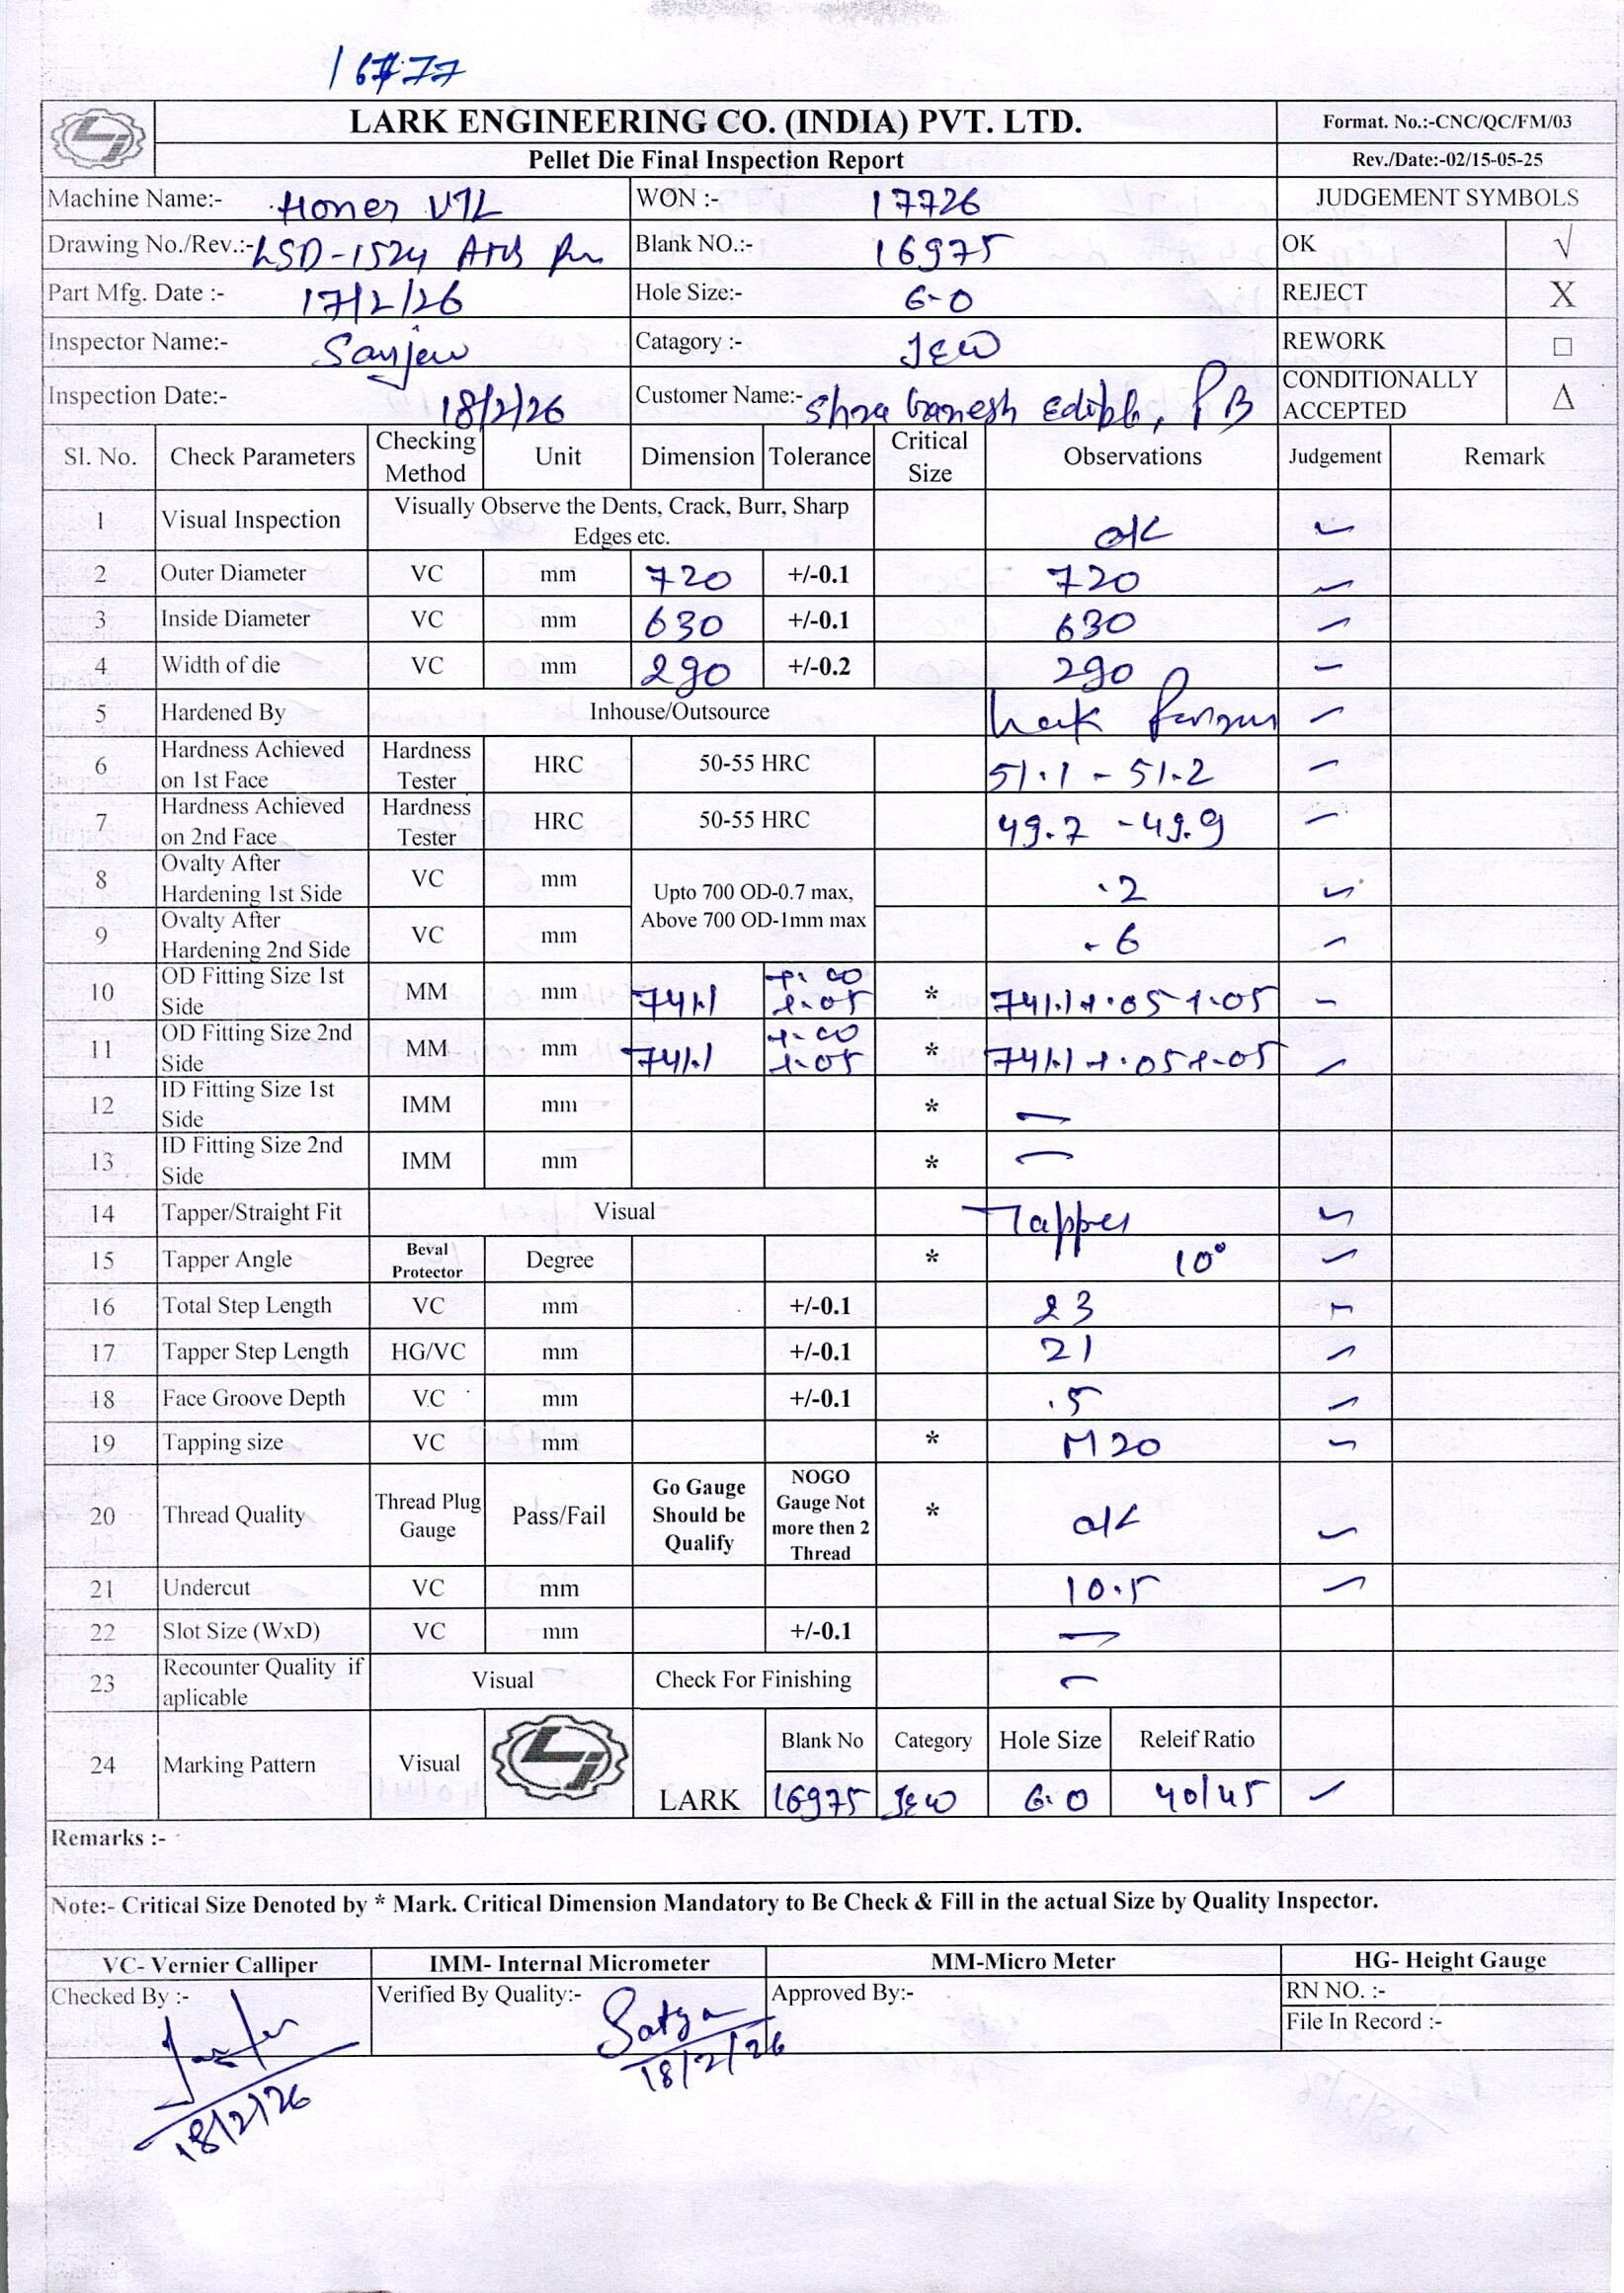 LARK ENGINEERING CO. (INDIA) PVT. LTD.
Format. No.:-CNC/QC/FM/03
Pellet Die Final Inspection Report
Rev./Date:-02/15-05-25
Machine Name:- Honer VTL WON :- 17726 JUDGEMENT SYMBOLS
Drawing No./Rev.:- LSD-1524 Blank NO.:- 16975 OK √
Part Mfg. Date :- 17/2/26 Hole Size:- 6-0 REJECT X
Inspector Name:- Sanjeev Catagory :- JEW REWORK □
Inspection Date:- 18/2/26 Customer Name:- Shree Ganesh Edible, PB CONDITIONALLY ACCEPTED Δ
Sl. No. Check Parameters Checking Method Unit Dimension Tolerance Critical Size Observations Judgement Remark
1 Visual Inspection Visually Observe the Dents, Crack, Burr, Sharp Edges etc. ok
2 Outer Diameter VC mm 720 +/-0.1 720
3 Inside Diameter VC mm 630 +/-0.1 630
4 Width of die VC mm 290 +/-0.2 290
5 Hardened By Inhouse/Outsource Lark
6 Hardness Achieved on 1st Face Hardness Tester HRC 50-55 HRC 51.1 - 51.2
7 Hardness Achieved on 2nd Face Hardness Tester HRC 50-55 HRC 49.7 - 49.9
8 Ovalty After Hardening 1st Side VC mm Upto 700 OD-0.7 max, Above 700 OD-1mm max .2
9 Ovalty After Hardening 2nd Side VC mm .6
10 OD Fitting Size 1st Side MM mm 741.1 +.00 +.05 * 741.1+.05+.05
11 OD Fitting Size 2nd Side MM mm 741.1 +.00 +.05 * 741.1+.05+.05
12 ID Fitting Size 1st Side IMM mm * —
13 ID Fitting Size 2nd Side IMM mm * —
14 Tapper/Straight Fit Visual Tapper
15 Tapper Angle Beval Protector Degree * 10°
16 Total Step Length VC mm +/-0.1 23
17 Tapper Step Length HG/VC mm +/-0.1 21
18 Face Groove Depth VC mm +/-0.1 .5
19 Tapping size VC mm * M20
20 Thread Quality Thread Plug Gauge Pass/Fail Go Gauge Should be Qualify NOGO Gauge Not more then 2 Thread * ok
21 Undercut VC mm 10.5
22 Slot Size (WxD) VC mm +/-0.1 —
23 Recounter Quality if aplicable Visual Check For Finishing —
24 Marking Pattern Visual LARK Blank No Category Hole Size Releif Ratio
16975 JEW 6.0 40/45
Remarks :-
Note:- Critical Size Denoted by * Mark. Critical Dimension Mandatory to Be Check & Fill in the actual Size by Quality Inspector.
VC- Vernier Calliper IMM- Internal Micrometer MM-Micro Meter HG- Height Gauge
Checked By :- Verified By Quality:- Satya Approved By:- RN NO. :-
File In Record :-
18/2/26
18/2/26